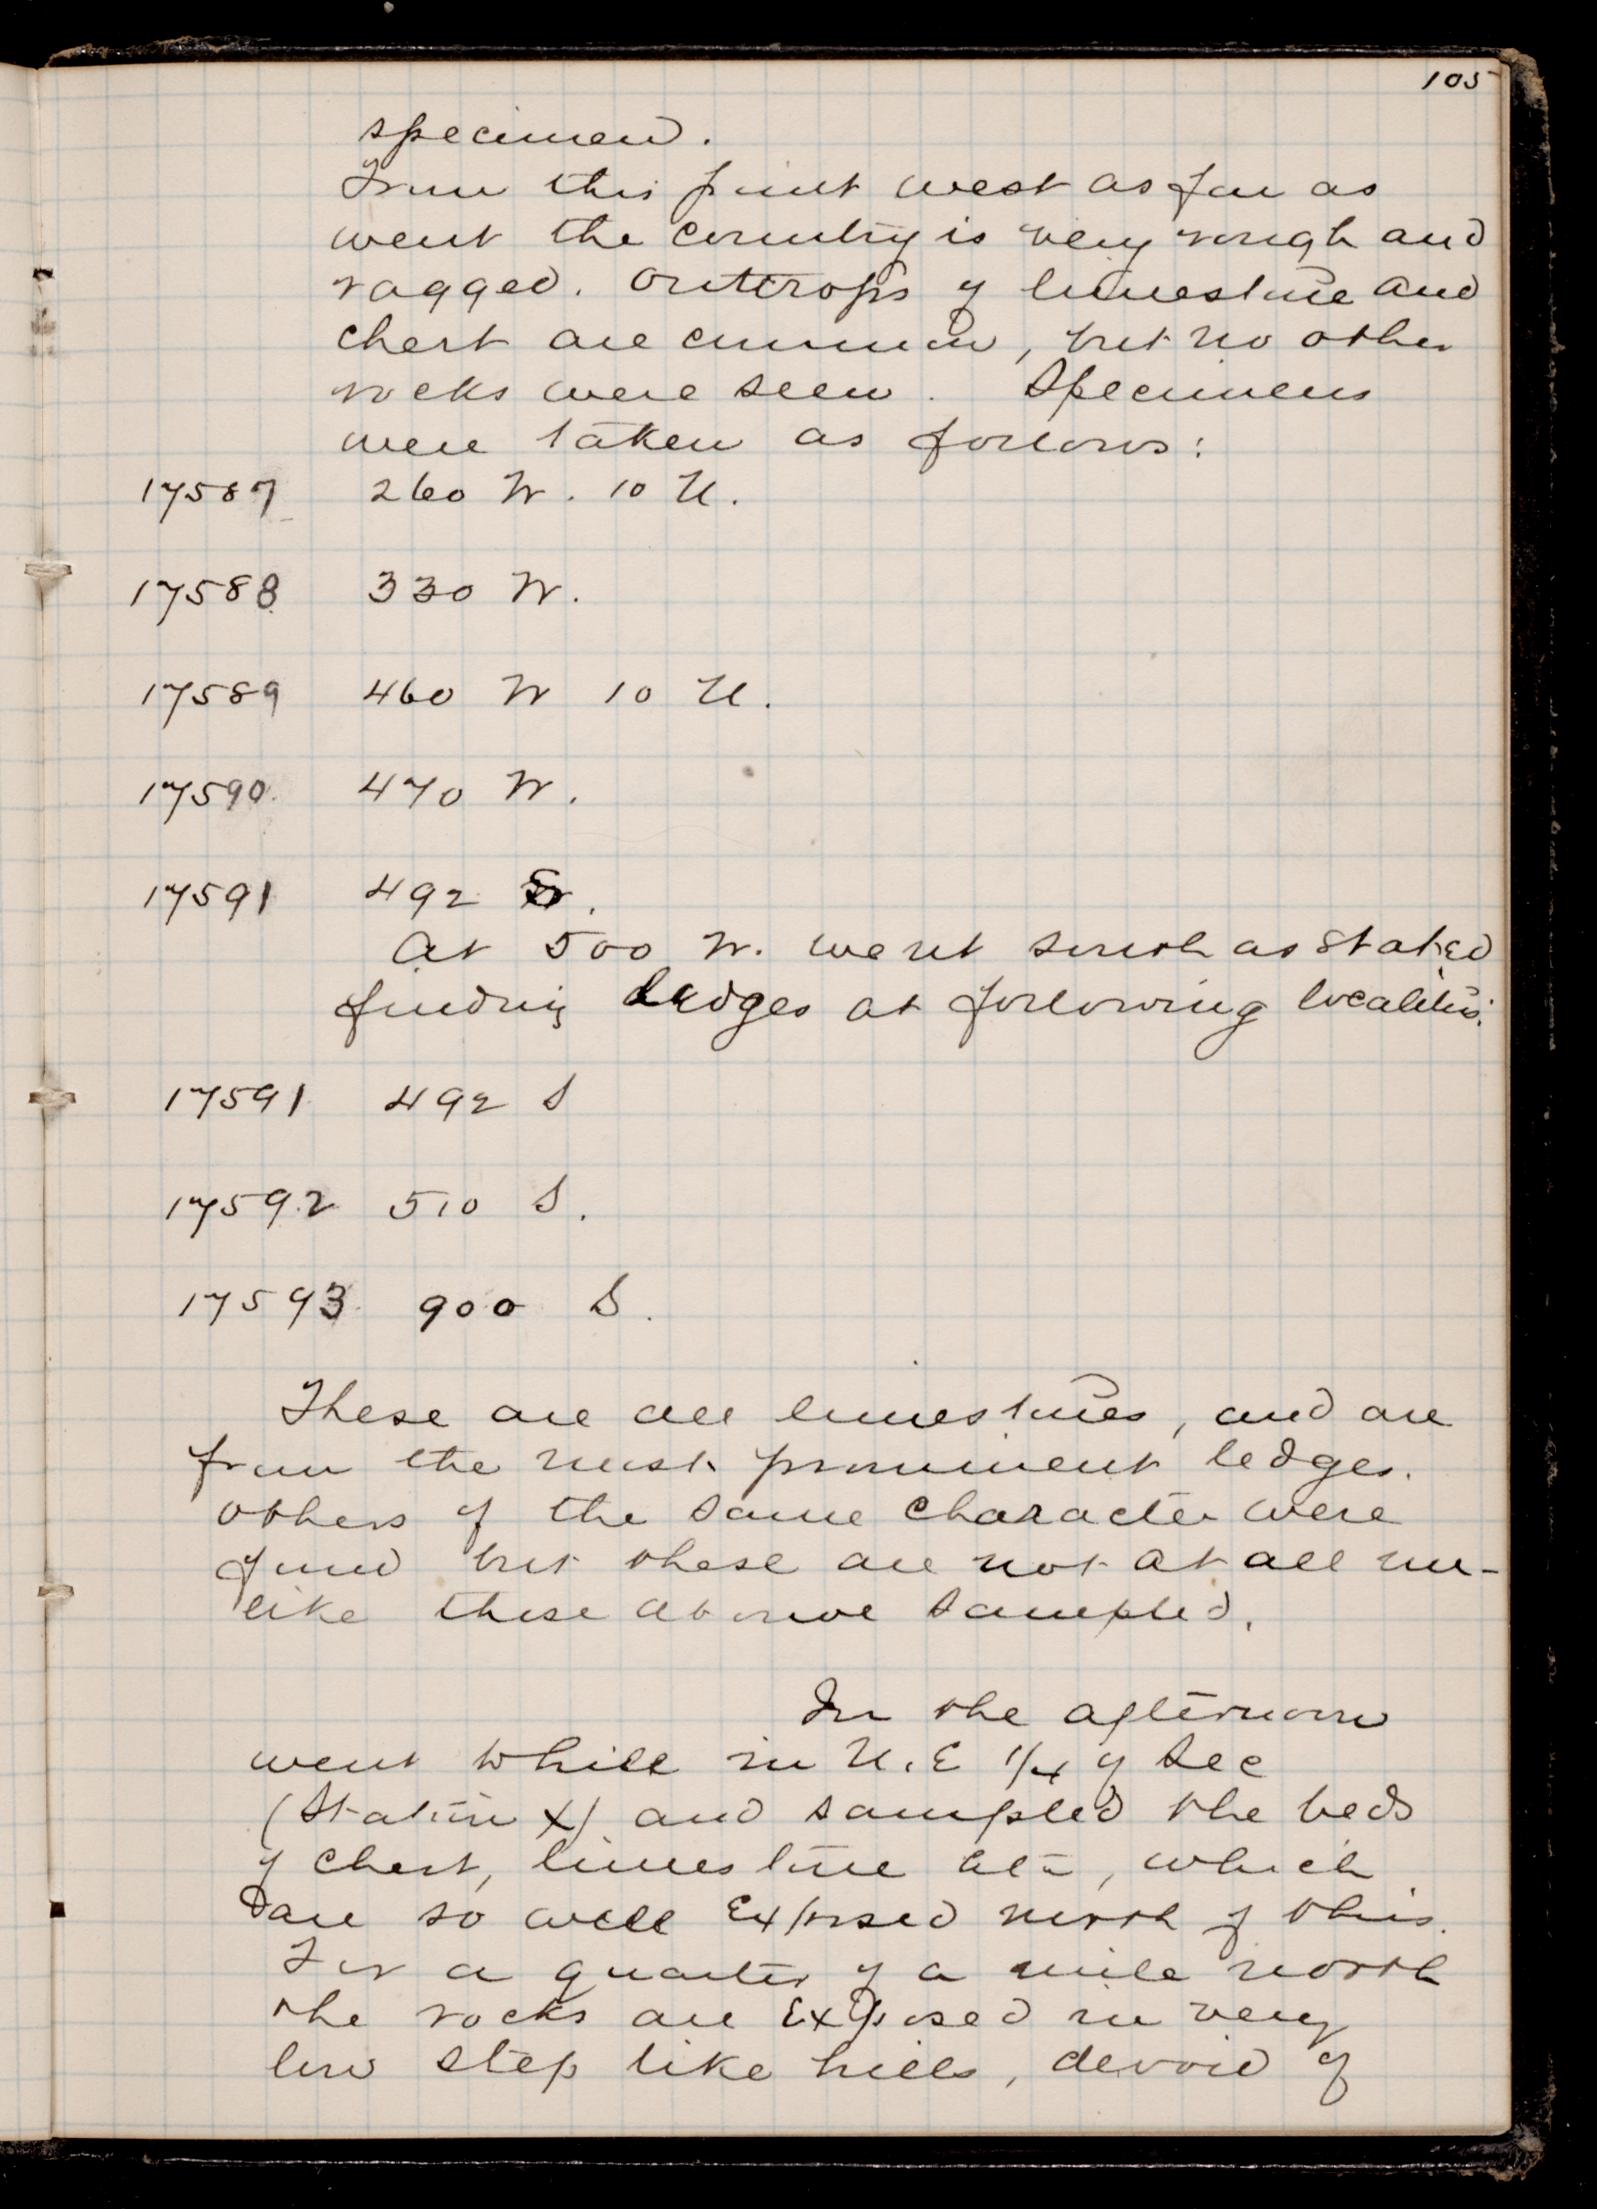 105
specimen.
From this point west as far as
went the country is very rough and
ragged. Outcrops of limestone and
chert are common, but no other
rocks were seen. Specimens
were taken as follows:
17587 260 W. 10 N.
17588 330 W.
17589 460 W 10 N.
17590 470 W.
17591 492 S.
At 500 W. went south as stated
finding ledges at following localities:
17591 492 S
17592 510 S.
17593 900 S.
These are all limestones, and are
from the most prominent ledges.
others of the same character were
found but these are not at all un-
like those above sampled.
In the afternoon
went to hill in N.E 1/4 of Sec
(Station X) and sampled the beds
of chert, limestone etc, which
are so well Exposed north of this.
For a quarter of a mile north
the rocks are Exposed in very
low step like hills, devoid of